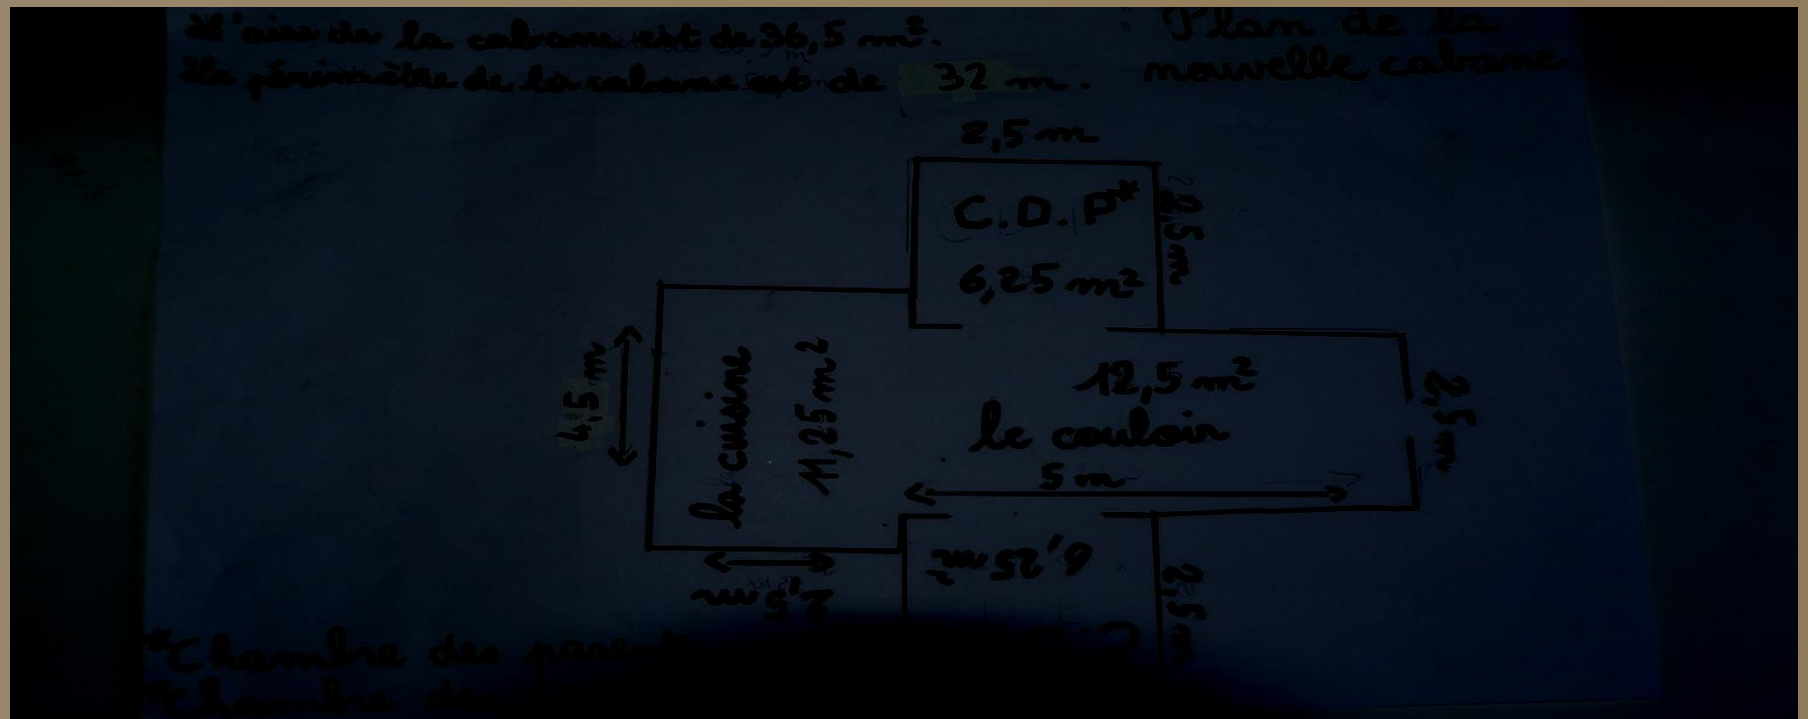 L'aire de la cabane est de 36,5 m².
Le périmètre de la cabane est de 32 m.
* Plan de la
nouvelle cabane
2,5 m
C.D.P*
2,5 m
6,25 m²
4,5 m
la cuisine
11,25 m²
12,5 m²
le couloir
5 m
2,5 m
2,5 m
6,25 m²
2,5 m
*Chambre des parent
*Chambre de